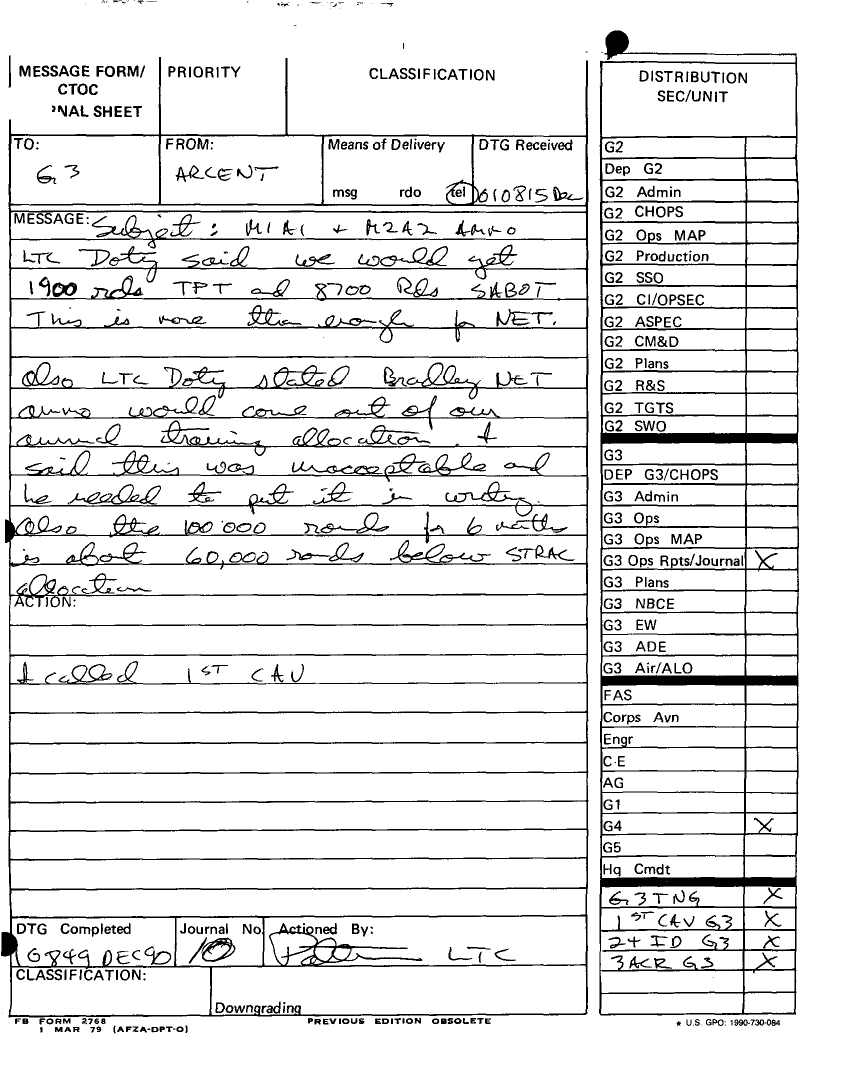 MESSAGE FORM/
CTOC
'NAL SHEET
PRIORITY
CLASSIFICATION
TO:
G3
FROM:
ARCENT
Means of Delivery
msg rdo tel
DTG Received
010815 Dec
MESSAGE: Subject: M1A1 + M2A2 Ammo
LTC Doty said we would get
1900 rds TPT and 8700 Rds SABOT.
This is more than enough for NET.
Also LTC Doty stated Bradley NET
ammo would come out of our
annual training allocation. I
said this was unacceptable and
he needed to put it in writing.
Also the 100,000 rounds for 6 months
is about 60,000 rounds below STRAC
allocation
ACTION:
I called 1ST CAV
DTG Completed
Journal No
10
Actioned By:
LTC
CLASSIFICATION:
Downgrading
FB FORM 2768
1 MAR 79 (AFZA-DPT-O)
PREVIOUS EDITION OBSOLETE
DISTRIBUTION
SEC/UNIT
G2
Dep G2
G2 Admin
G2 CHOPS
G2 Ops MAP
G2 Production
G2 SSO
G2 CI/OPSEC
G2 ASPEC
G2 CM&D
G2 Plans
G2 R&S
G2 TGTS
G2 SWO
G3
DEP G3/CHOPS
G3 Admin
G3 Ops
G3 Ops MAP
G3 Ops Rpts/Journal X
G3 Plans
G3 NBCE
G3 EW
G3 ADE
G3 Air/ALO
FAS
Corps Avn
Engr
C-E
AG
G1
G4 X
G5
Hq Cmdt
G3 TNG X
1ST CAV G3 X
24 ID G3 X
3ACR G3 X
★ U.S. GPO: 1990-730-084